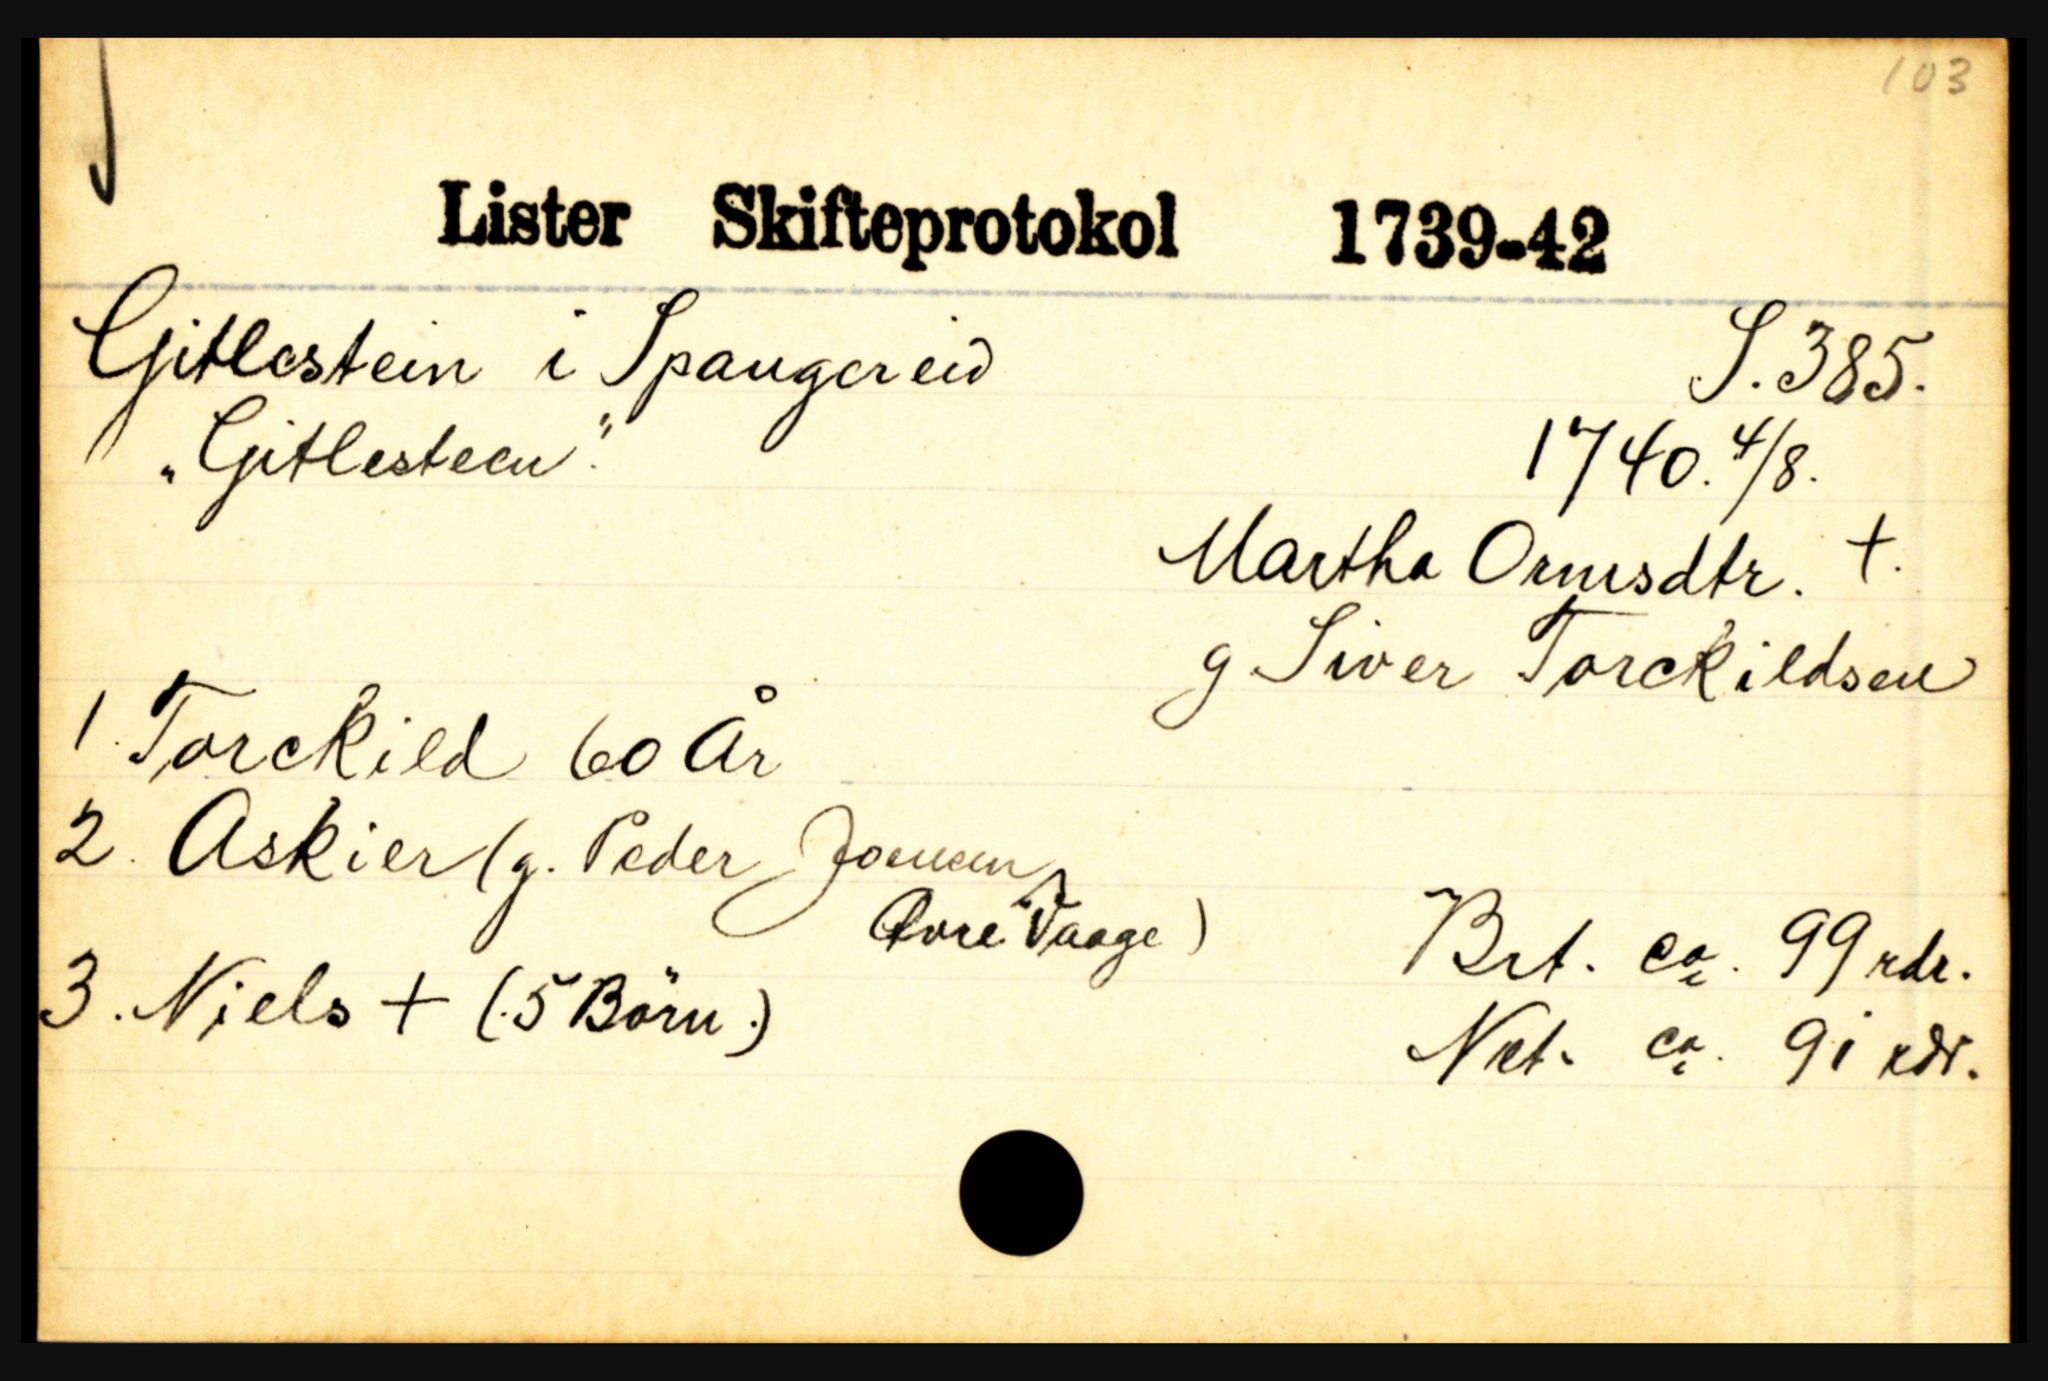 103
Lister Skifteprotokol 1739-42
Gitlestein i Spangereid S. 385.
„Gitlesteen". 1740. 4/8.
Martha Ormsdtr. †.
g Siver Torckildsen
1. Torckild 60 År
2. Askier (g. Peder
Øvre Vaage)
Brt. ca. 99 rdr.
3. Niels † (.5 Börn.)
Net. ca. 91 rdr.